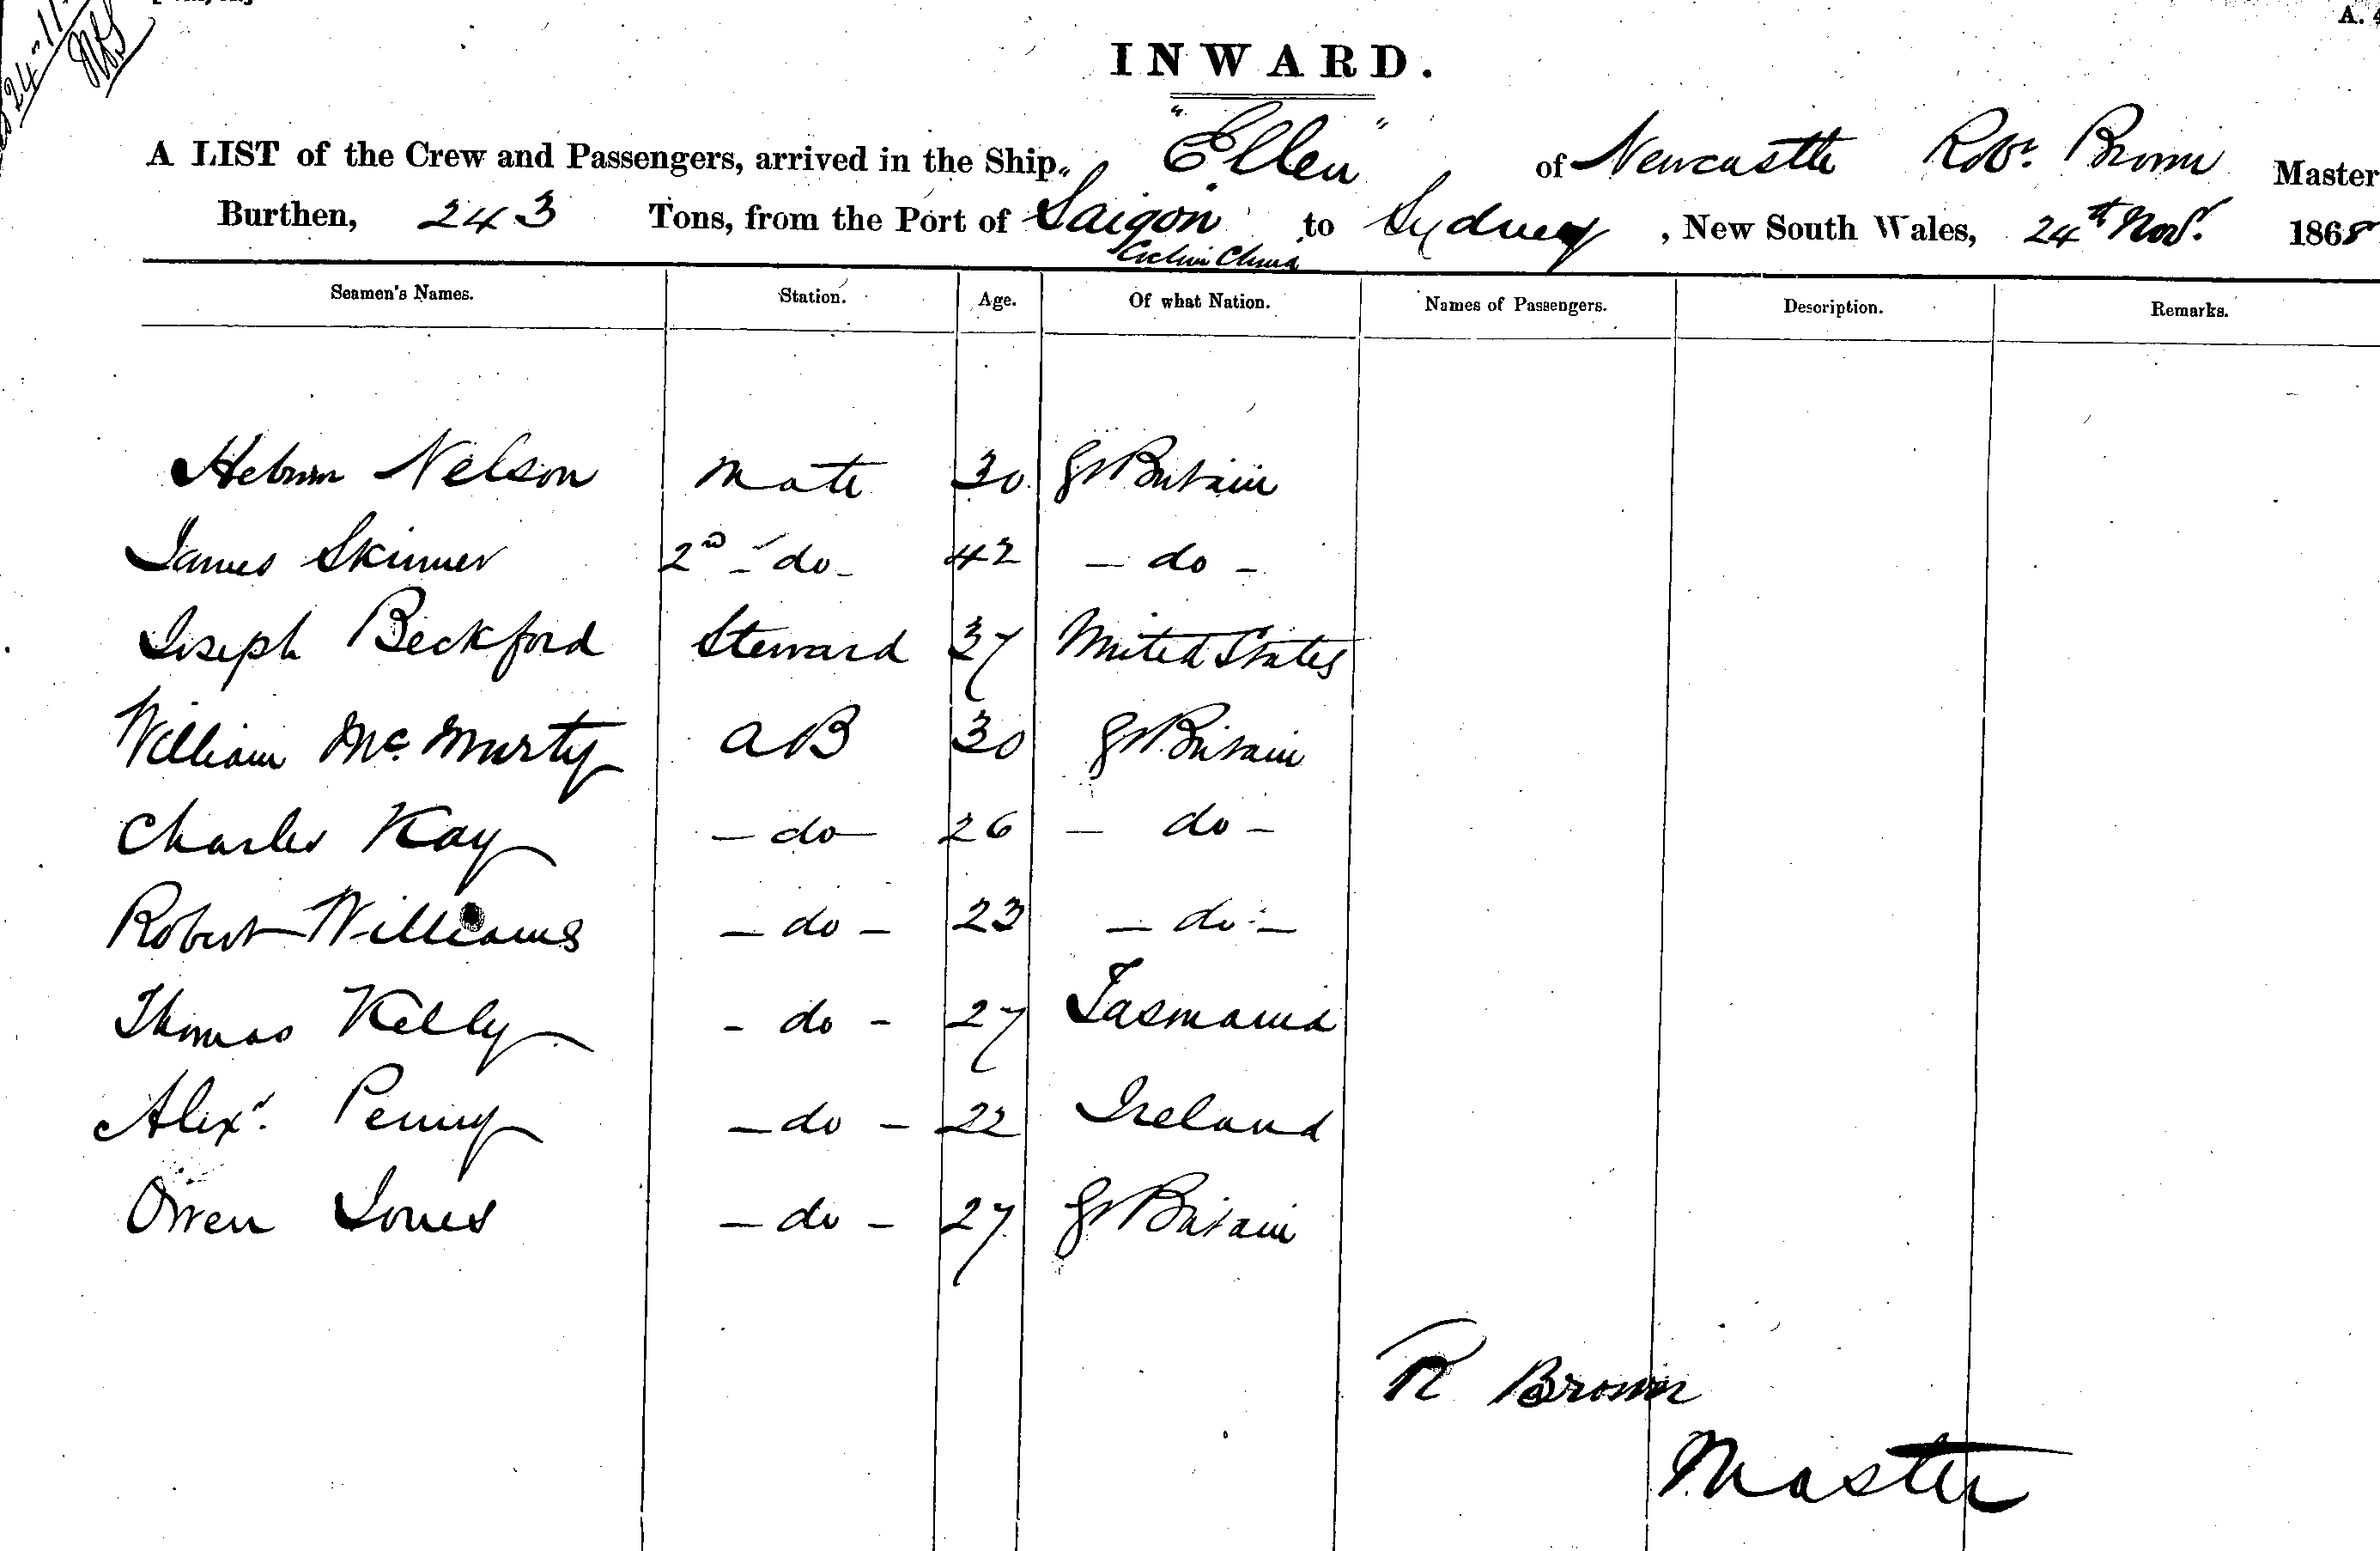 24-11
A. 4
INWARD.
A LIST of the Crew and Passengers, arrived in the Ship "Ellen" of Newcastle Robt. Brown Master
Burthen, 243 Tons, from the Port of Saigon to Sydney, New South Wales, 24th Novr. 1868
Cochin China
Seamen's Names. Station. Age. Of what Nation. Names of Passengers. Description. Remarks.
Nelson Mate 30 Gt Britain
James Skinner 2nd - do - 42 - do -
Joseph Beckford Steward 37 United States
William Mc. Murty AB 30 Gt Britain
Charles Kay - do - 26 - do -
Robert Williams - do - 23 - do -
Thomas Kelly - do - 27 Tasmania
Alexr. Penny - do - 22 Ireland
Owen Jones - do - 27 Gt Britain
R Brown
Master